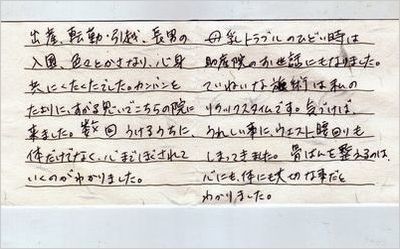 出産、転勤・引越、長男の
入園、色々とかさなり、心身
共にくたくたでした。カンバンを
たよりに、すがる思いでこちらの院に
来ました。数回うけるうちに、
体だけでなく、心までほぐされて
いくのがわかりました。
母乳トラブルのひどい時は
助産院のお世話にもなりました。
ていねいな施術は私の
リラックスタイムです。気づけば、
うれしい事にウエスト、腰回りも
しまってきました。骨ばんを整えるのは、
心にも、体にも大切な事だと
わかりました。